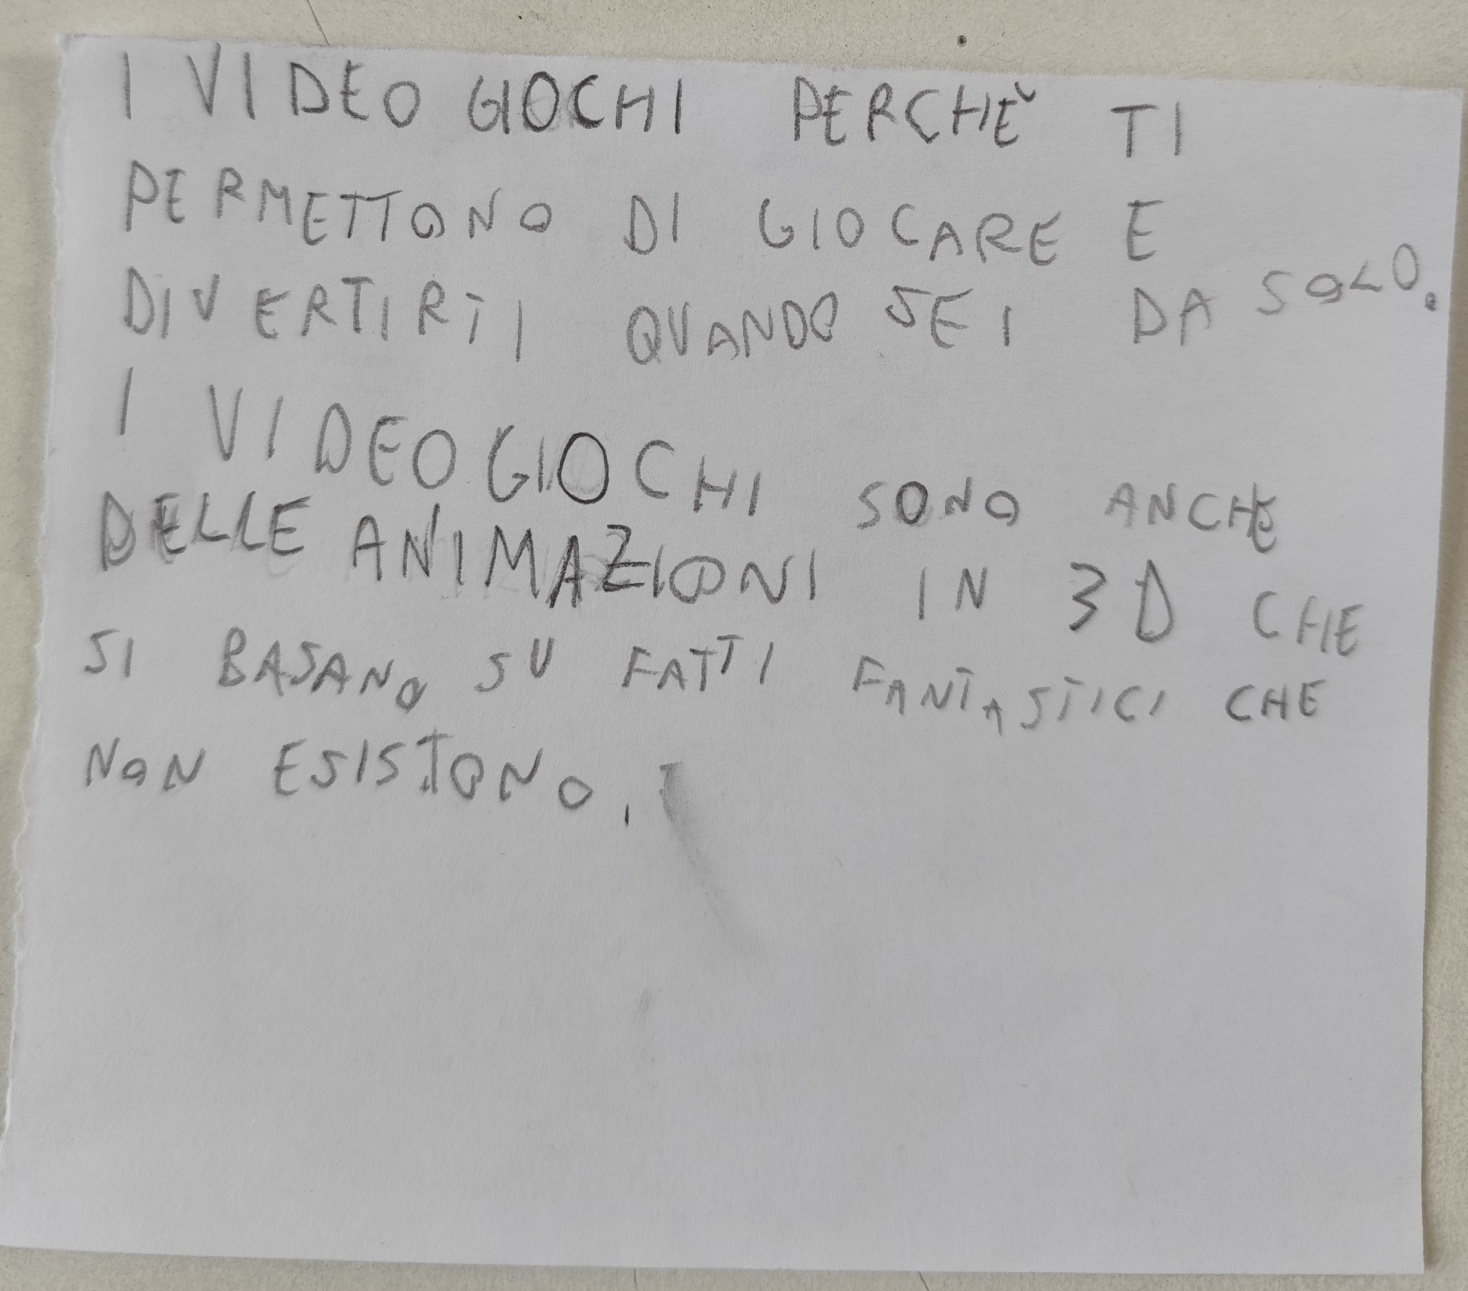 I VIDEO GIOCHI PERCHÈ TI
PERMETTONO DI GIOCARE E
DIVERTIRTI QUANDO SEI DA SOLO.
I VIDEOGIOCHI SONO ANCHE
DELLE ANIMAZIONI IN 3D CHE
SI BASANO SU FATTI FANTASTICI CHE
NON ESISTONO.